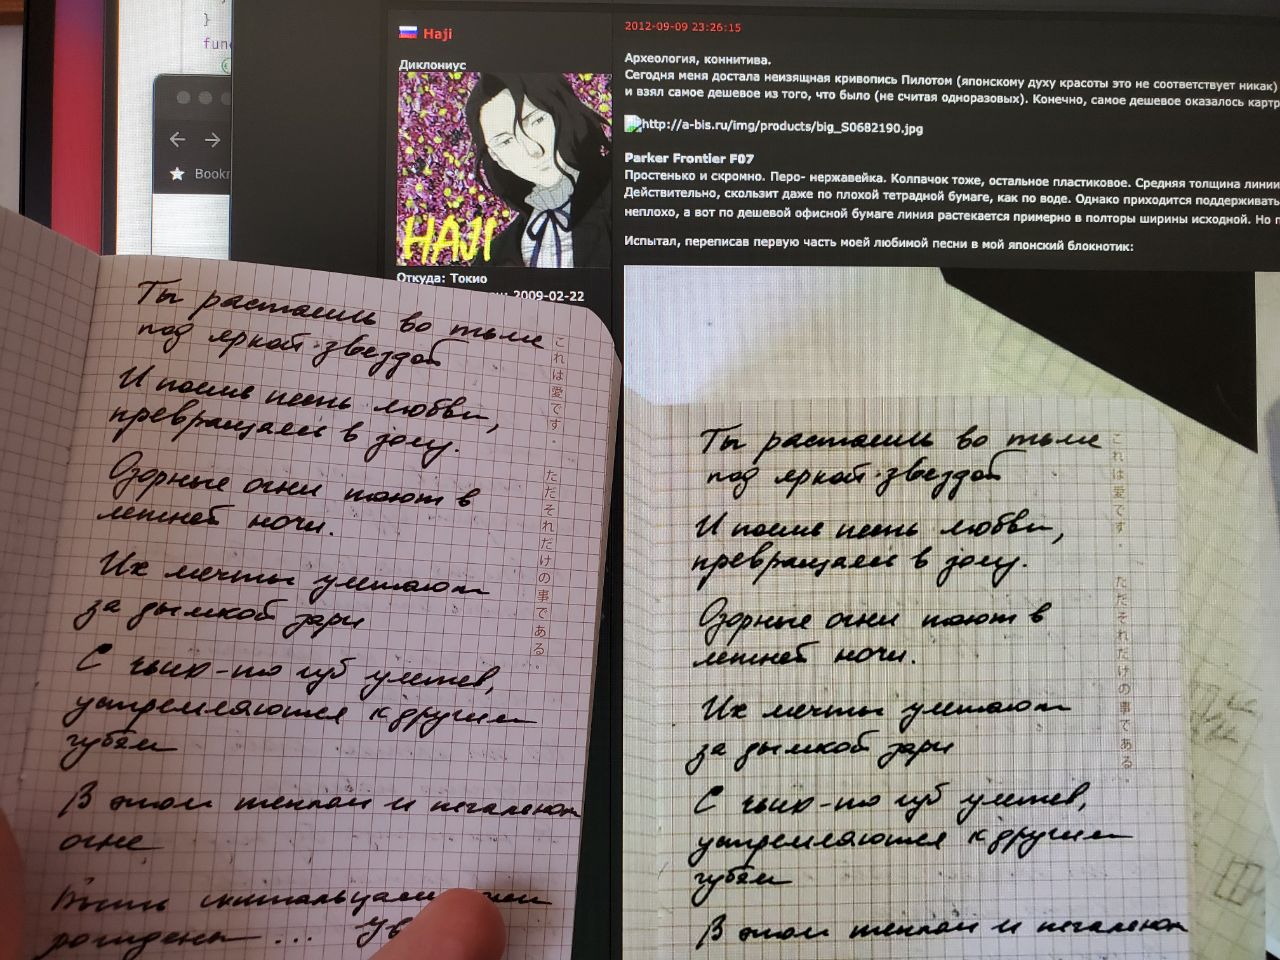 func
Bookm
Haji
Диклониус
HAJI
Откуда: Токио
2009-02-22
2012-09-09 23:26:15
Археология, коннитива.
Сегодня меня достала неизящная кривопись Пилотом (японскому духу красоты это не соответствует никак)
и взял самое дешевое из того, что было (не считая одноразовых). Конечно, самое дешевое оказалось картр
http://a-bis.ru/img/products/big_S0682190.jpg
Parker Frontier F07
Простенько и скромно. Перо- нержавейка. Колпачок тоже, остальное пластиковое. Средняя толщина линии
Действительно, скользит даже по плохой тетрадной бумаге, как по воде. Однако приходится поддерживать
неплохо, а вот по дешевой офисной бумаге линия растекается примерно в полторы ширины исходной. Но п
Испытал, переписав первую часть моей любимой песни в мой японский блокнотик:
Ты растаешь во тьме
под яркой звездой
И после песнь любви,
превращаясь в золу.
Озорные огни тают в
летней ночи.
Их мечты улетают
за дымкой зари
С чьих-то губ улетев,
устремляются к другим
губам
В этом теплом и печальном
огне
Быть скитальцами
рождены ...
これは愛です。 ただそれだけの事である。
Ты растаешь во тьме
под яркой звездой
И после песнь любви,
превращаясь в золу.
Озорные огни тают в
летней ночи.
Их мечты улетают
за дымкой зари
С чьих-то губ улетев,
устремляются к другим
губам
В этом теплом и печальном
これは愛です。 ただそれだけの事である。